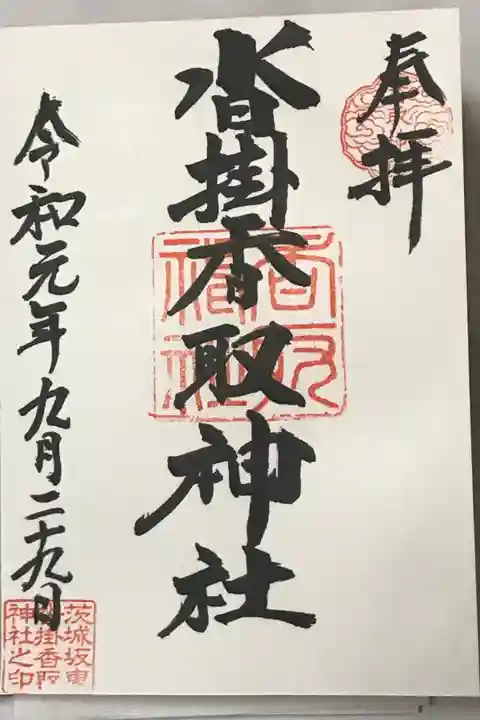 奉拝
沓掛香取神社
令和元年九月二十九日
香取神社
茨城坂東
沓掛香取
神社之印